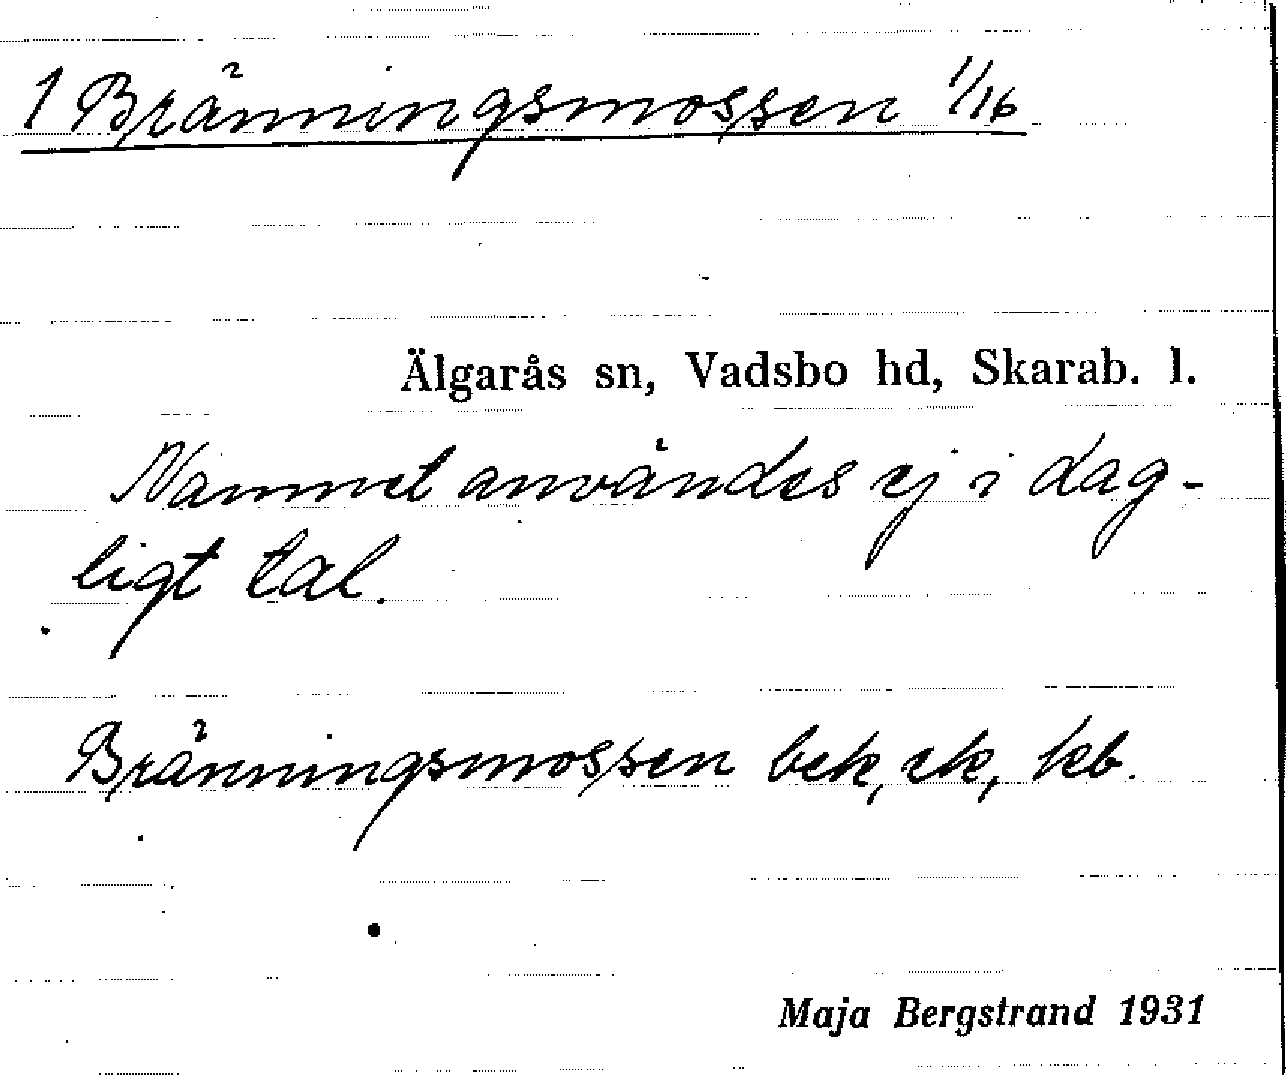 1 Bränningsmossen 1/16
Älgarås sn, Vadsbo hd, Skarab. l.
Namnet användes ej i dag-
ligt tal.
Bränningsmossen bek, ek, kb.
Maja Bergstrand 1931